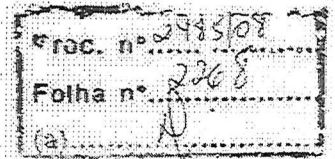 Proc. nº 2985/08
Folha nº 236
(a)